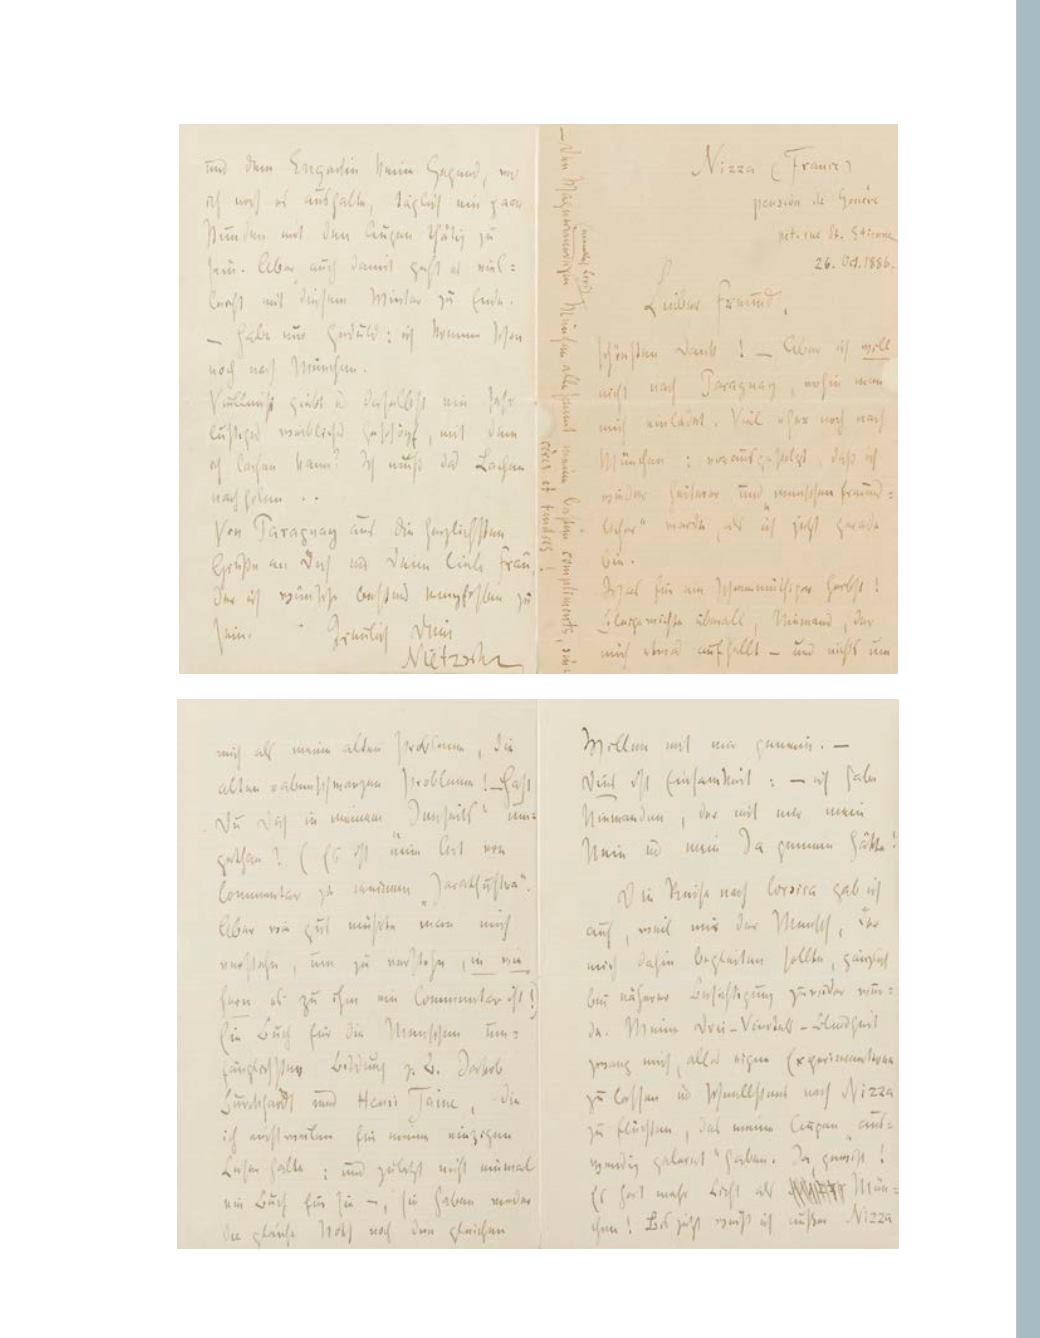 Nizza (France)
pension de Genève
pet. rue St. Etienne
26. Oct. 1886.
Lieber Freund,
schönsten Dank! — Aber ich will
nicht nach Paraguay, wohin man
mich einladet. Viel eher noch nach
München: vorausgesetzt, daß ich
wieder heiterer und „menschenfreund-
licher“ werde, als ich jetzt gerade
bin.
Was für ein schwermüthiger Herbst!
Bleigewichte überall, Niemand, der
mich etwas aufhellt — und nichts um
mich als meine alten Probleme, die
alten rabenschwarzen Probleme! — Hast
Du Dich in meinem „Jenseits“ um-
gethan? (Es ist eine Art von
Commentar zu meinem „Zarathustra“.
Aber wie gut müßte man mich
verstehn, um zu verstehn, in wie
fern es zu ihm ein Commentar ist!)
Ein Buch für die Menschen um-
fänglichster Bildung z. B. Jacob
Burckhardt und Henri Taine, die
ich einstweilen für meine einzigen
Leser halte: und zuletzt nicht einmal
ein Buch für sie —, sie haben weder
die gleiche Noth noch den gleichen
Willen mit mir gemein. —
Dies ist Einsamkeit: — ich habe
Niemanden, der mit mir mein
Nein u mein Ja gemein hätte!
Die Reise nach Corsica gab ich
auf, weil mir der Mensch, der
mich dahin begleiten sollte, gänzlich
bei näherer Besichtigung zuwider wur-
de. Meine Drei-Viertels-Blindheit
zwang mich, alles eigne Experimentiren
zu lassen u schnellstens nach Nizza
zu flüchten, das meine Augen „aus-
wendig gelernt“ haben. Ja gewiß!
Es hat mehr Licht als Mün-
chen! Bis jetzt weiß ich außer Nizza
und dem Engadin keine Gegend, wo
ich noch es aushalte, täglich ein paar
Stunden mit den Augen thätig zu
sein. Aber auch damit geht es viel-
leicht mit diesem Winter zu Ende.
— Habe nur Geduld: ich komme schon
noch nach München.
Vielleicht giebt es daselbst ein sehr
lustiges weibliches Geschöpf, mit dem
ich lachen kann? Ich muß das Lachen
nachholen . .
Von Paraguay aus die herzlichsten
Grüße an Dich und Deine liebe Frau,
der ich wünsche bestens empfohlen zu
sein.
Treulich Dein
Nietzsche
— Den Künsten allesammt meine besten compliments, sin-
cères et tendres!